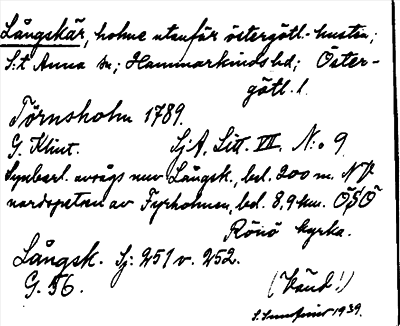 Långskär, holme utanför östergötl.-kusten;
S:t Anna sn; Hammarkinds hd; Öster-
götl. l.
Törnsholm 1789.
G. Klint. SjA, Litt. III. N:o 9
Synberl. avsågs nuv Långsk., bel. 200 m. NV
nordspetsen av Fyrholmen, bel. 8,9 km. ÖSÖ
Rönö kyrka.
Långsk. Sj: 251 v. 252.
G. 56. (Vänd!)
1939.